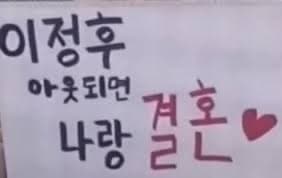 이정후
아웃되면
나랑 결혼♥